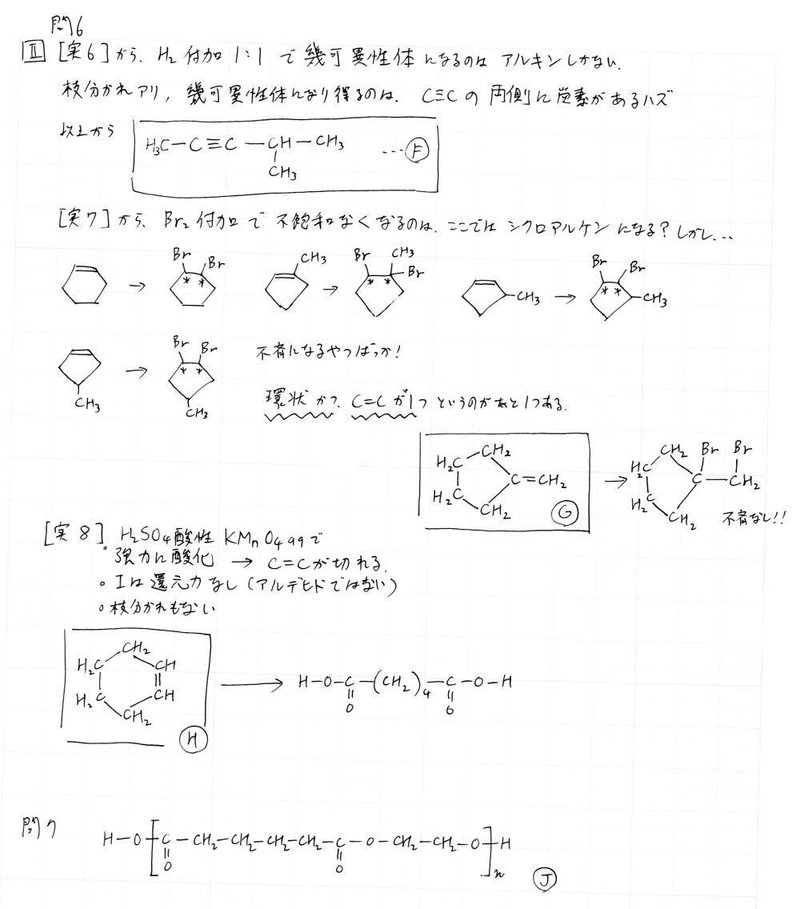 問6
II [実6]から、H₂付加 1:1 で 幾可異性体 になるのは アルキンしかない.
枝分かれアリ, 幾可異性体になり得るのは. C≡C の 両側に炭素があるハズ
以上から
H₃C-C≡C-CH-CH₃ …Ⓕ
CH₃
[実7]から、Br₂付加で 不飽和なくなるのは、ここでは シクロアルケン になる? しかし…
Br Br CH₃ Br CH₃ Br Br Br
* * * * CH₃ * * CH₃
Br Br
* *
CH₃ CH₃
不斉になるやつばっか!
環状 かつ C=C が1つ というのがあと1つある.
H₂C CH₂ C=CH₂
H₂C CH₂ Ⓖ
H₂C CH₂ Br Br
C CH₂
H₂C CH₂
不斉なし!!
[実8] H₂SO₄酸性 KMnO₄aqで
・強力に酸化 → C=Cが切れる.
○ Iは還元力なし (アルデヒドではない)
○ 枝分かれもない
CH₂
H₂C CH
H₂C CH
CH₂
Ⓗ
H-O-C-(CH₂)₄-C-O-H
O O
問7
H-O-[C-CH₂-CH₂-CH₂-CH₂-C-O-CH₂-CH₂-O]n-H
O O
Ⓙ